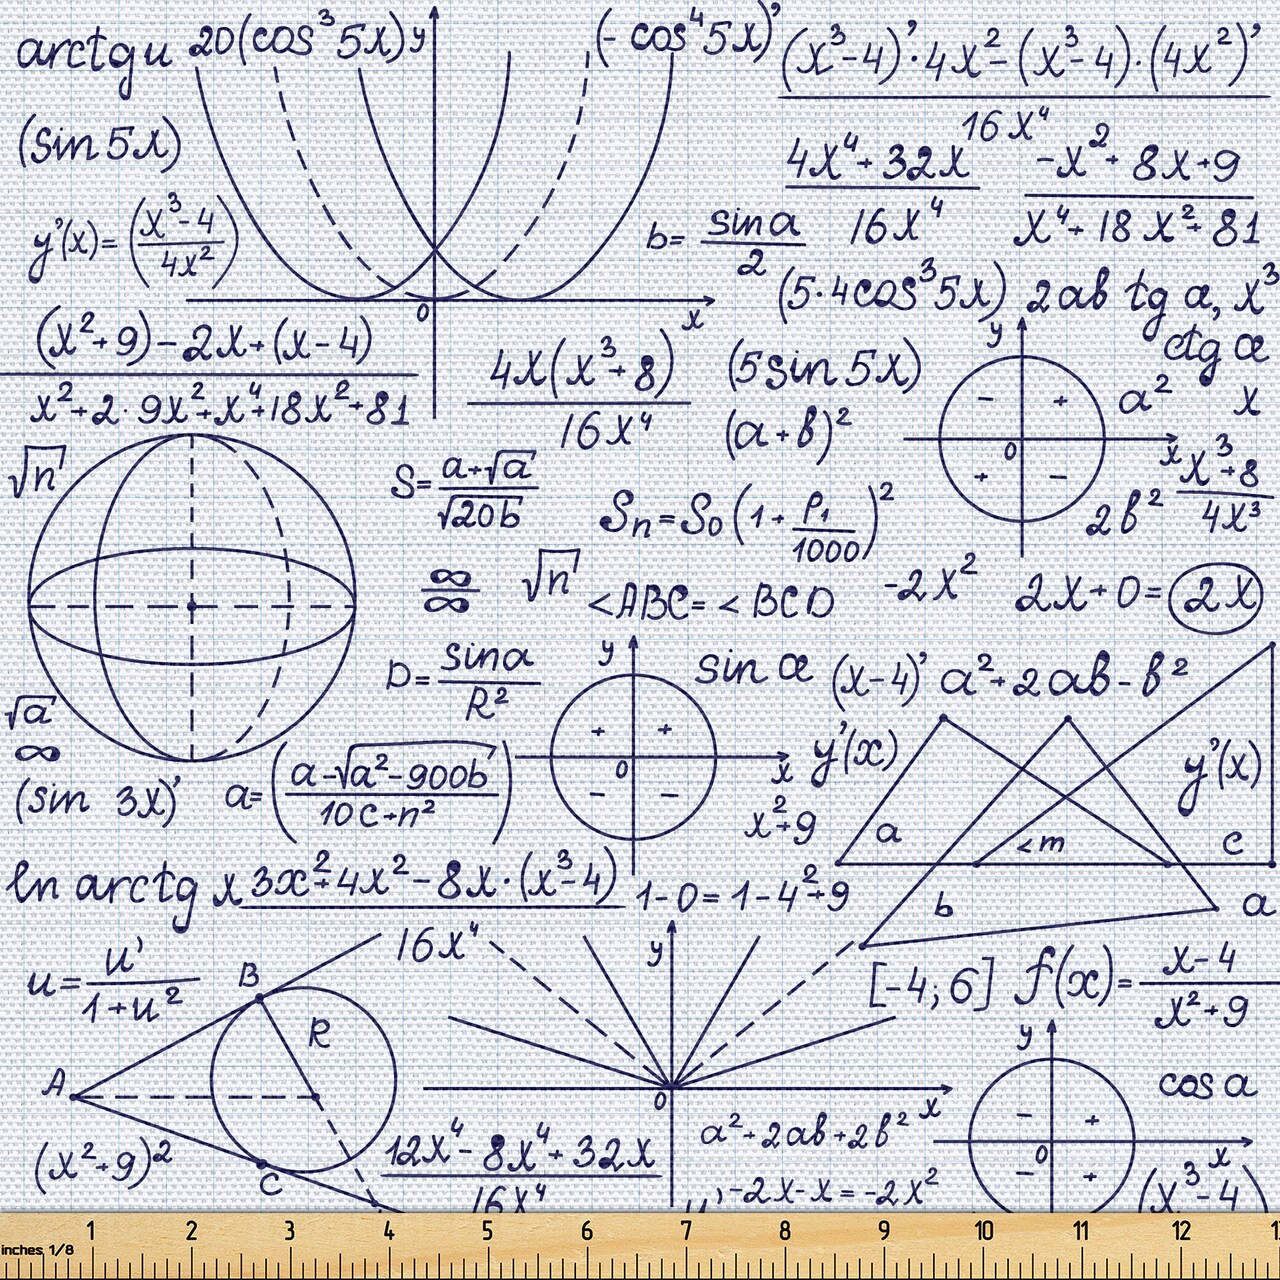 arctgu 20(cos³5x) y (-cos⁴5x)' (x³-4)'·4x²-(x³-4)·(4x²)'
16x⁴
(sin 5x)
4x⁴+32x
16x⁴
-x²+8x+9
x⁴+18x²+81
y'(x)=(x³-4/4x²)
b= sina/2
(5·4cos³5x) 2ab tg α, x³
0 x
(x²+9)-2x+(x-4)
x²+2·9x²+x⁴+18x²+81
4x(x³+8)
16x⁴
(5sin 5x)
(a+b)²
y
- +
0 x
+ -
ctg α
a² x
x³+8
4x³
2b²
√n
S= a+√a/√20b
Sn=S0(1+P1/1000)²
∞/∞ √n <ABC=<BCD -2x² 2x+0=2x
D= sinα/R²
y
+ +
0 x
- -
sin α (x-4)' a²+2ab-b²
√a
∞
(sin 3x)' a=(a-√a²-900b/10c+n²)
y'(x) y'(x)
x²+9 a <m c
b a
ln arctg x 3x²+4x²-8x·(x³-4)
16x⁴
1-0=1-4²+9
u= u'/1+u²
B
R
A
C
y
0 x
[-4;6] f(x)= x-4/x²+9
y
- +
0 x
- +
cos α
(x²+9)²
12x⁴-8x⁴+32x
16x⁴
a²+2ab+2b²
-2x-x=-2x²
(x³-4)
1 2 3 4 5 6 7 8 9 10 11 12
inches 1/8